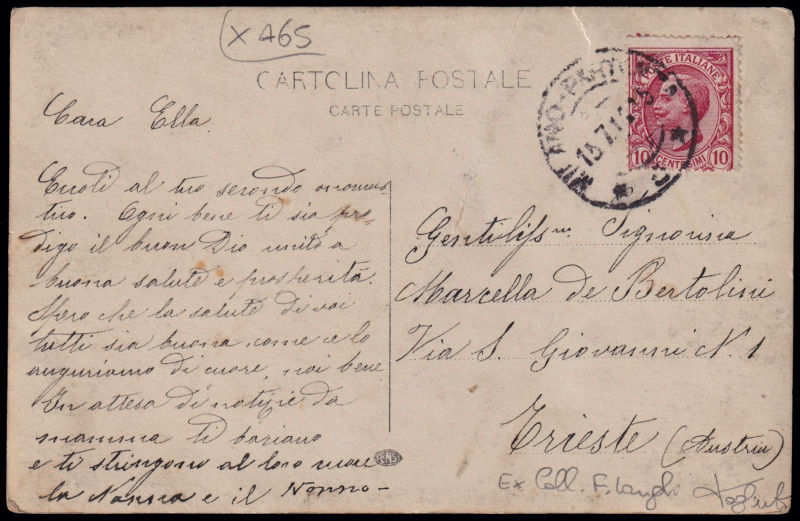 X 465
CARTOLINA POSTALE
CARTE POSTALE
POSTE ITALIANE
10 CENTESIMI 10
MILANO
Cara Ella.
al tuo secondo onomas-
tico. Ogni bene ti sia pro-
digo il buon Dio unito a
buona salute e prosperità.
Spero che la salute di voi
tutti sia buona come e lo
auguriamo di cuore, noi bene
In attesa di notizie da
mamma ti baciano
e ti stringono al loro cuore
la Nonna e il Nonno-
Gentiliss.ma Signorina
Marcella de Bertolini
Via S. Giovanni N. 1
Trieste (Austria)
Ex Coll.